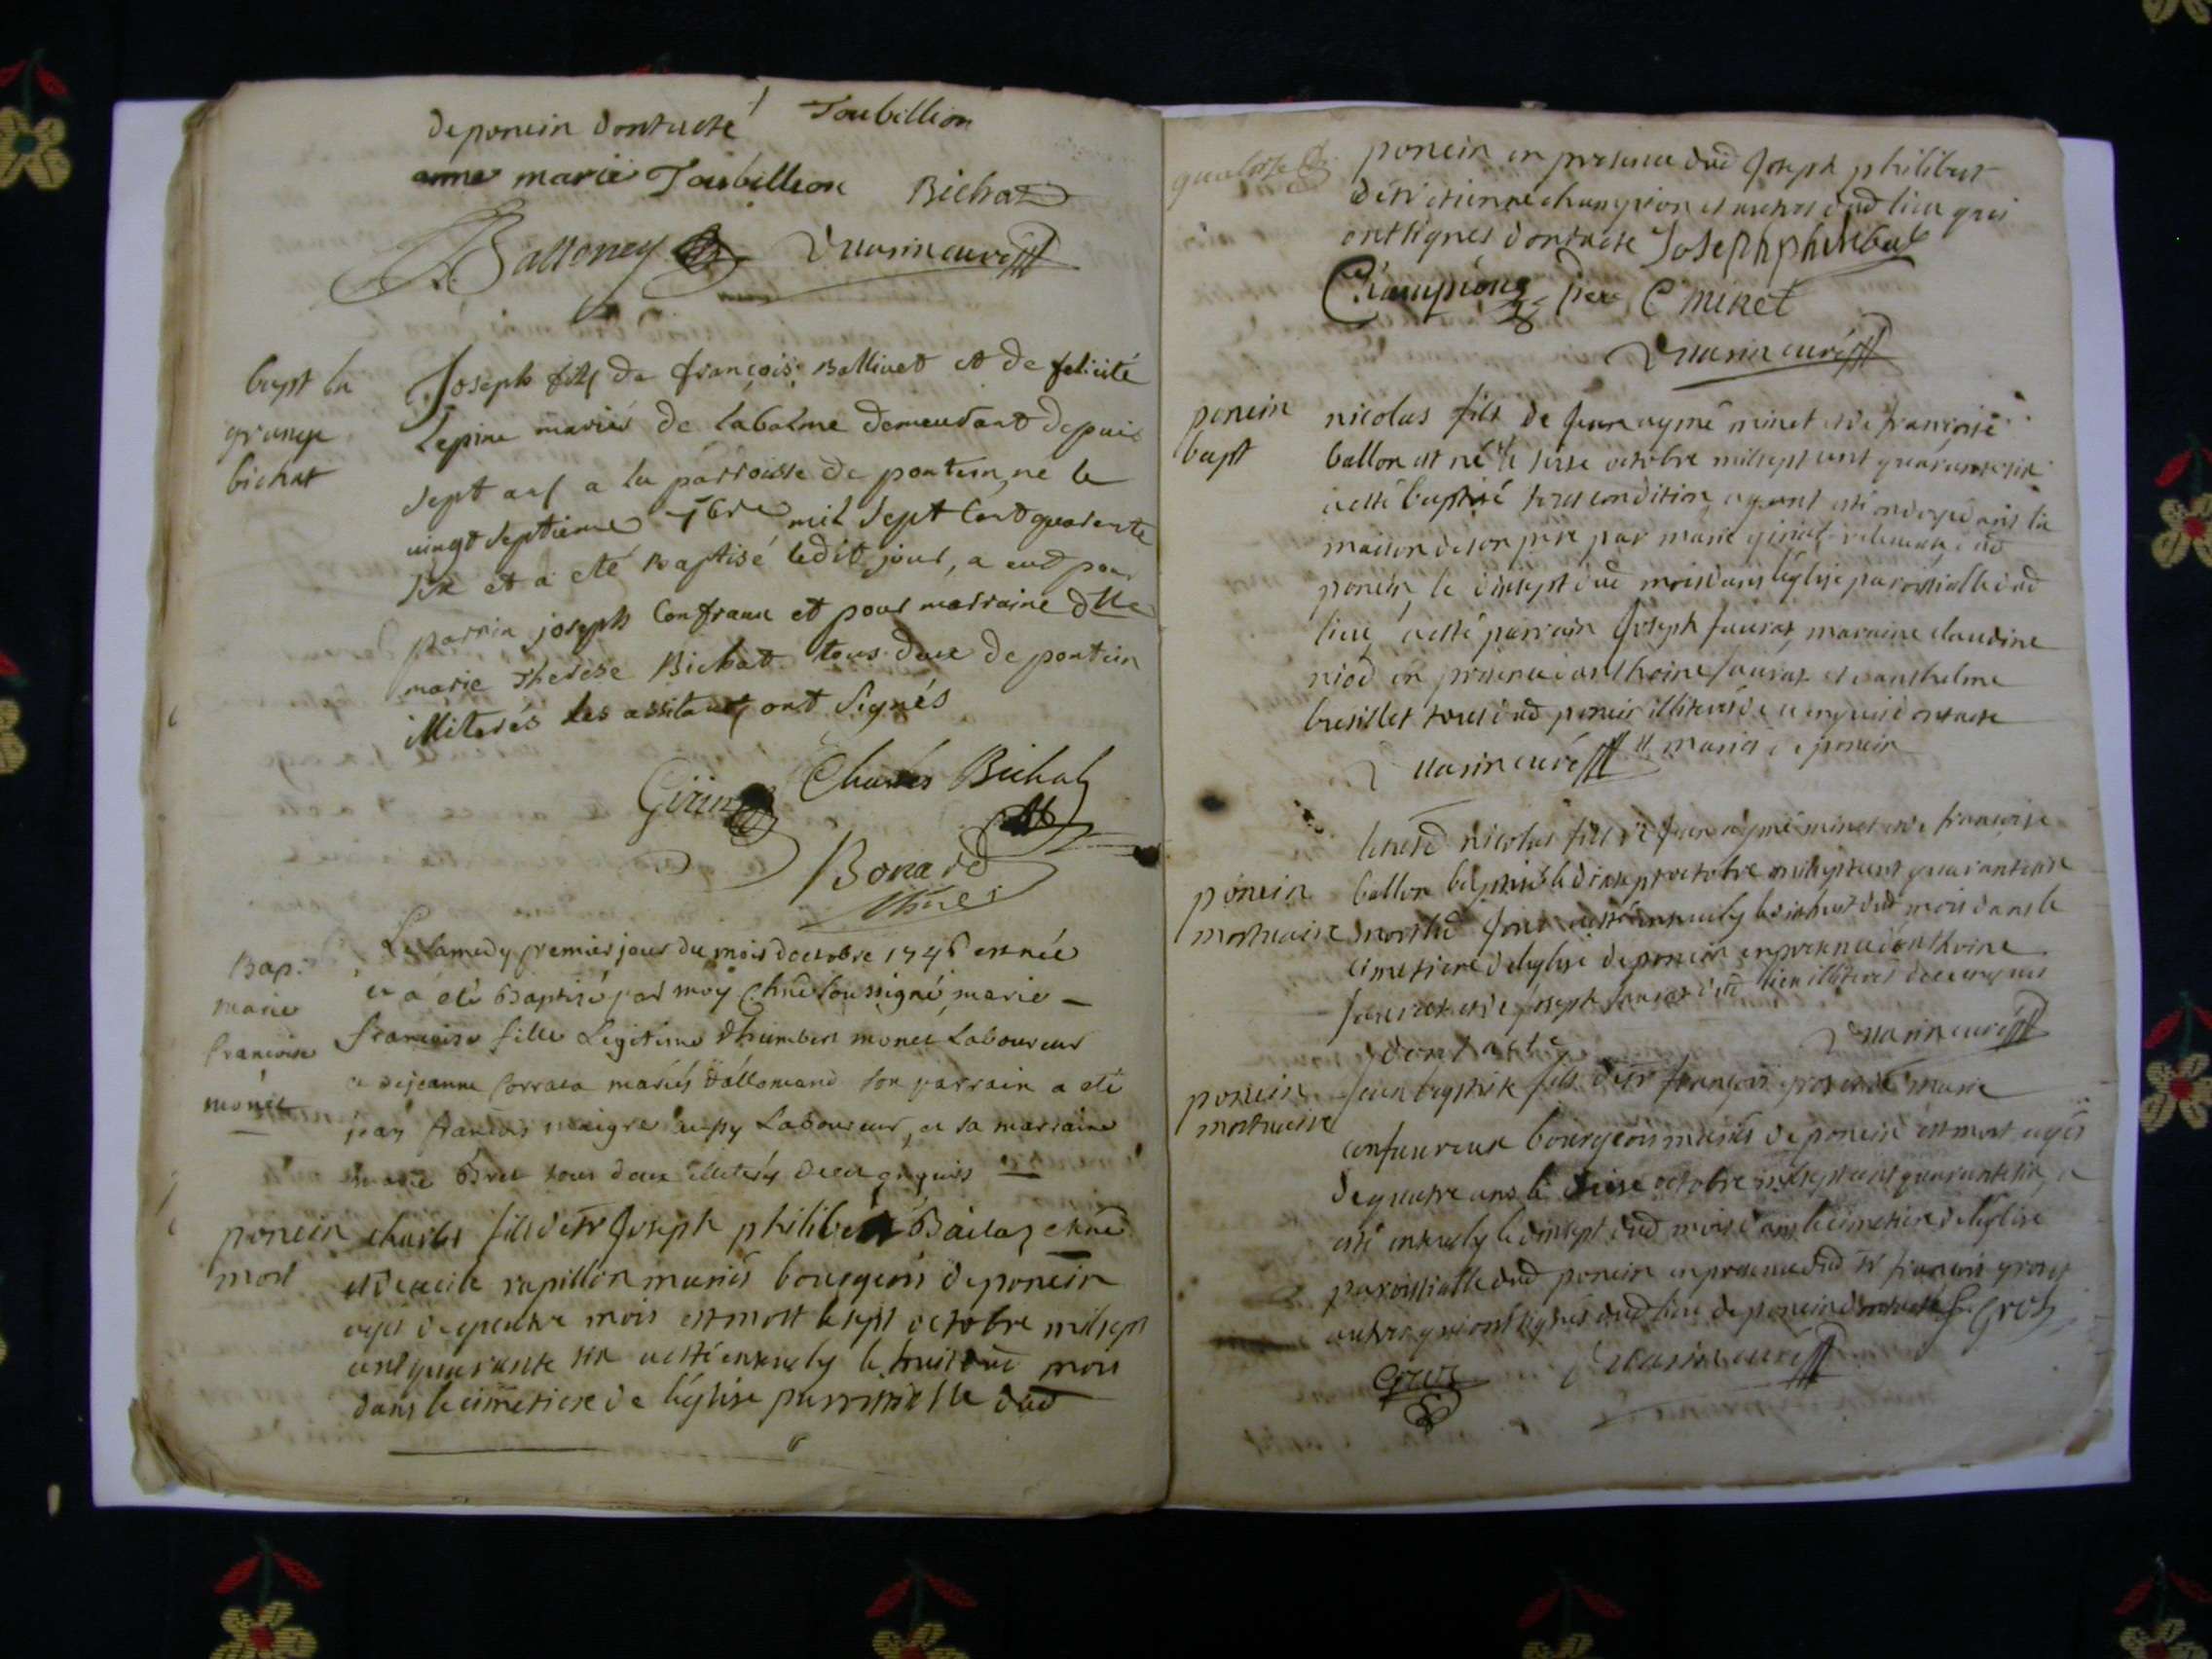 deponcin dontacte Toubillion
anne marie Toubillion Bichat
Balloney Vuarin curé
bapt la
grange
bichat
Joseph fils de françois Ballivet et de felicité
Lepine mariés de labalme demeurant depuis
sept ans a la parroisse de pontcin, né le
vingt septieme 7bre mil sept cent quarente
six et a eté Baptisé ledit jour, a eut pour
parrin joseph Confraux et pour marraine dlle
marie Therese Bichat tous deux de pontcin
illiterés les assitants ont signés
Girin Charles Bichat
Bonard
Bap.
marie
francoise
monet
Le samedy premier jour du mois doctobre 1746 est née
et a eté Baptizé par moy soussigné marie
francoise fille Legitime dhumbert monet Laboureur
et dejeanne mariés dallemand son parrain a eté
jean francois maigre Laboureur, et sa marraine
marie Bret tous deux illiterés de ce enquis
poncin
mort
charles fils de sr Joseph philibert
et de cecile rapillon mariés bourgeois de poncin
agés de quatre mois est mort le sept octobre mil sept
cent quarante six a esté ensevely le huit dud mois
dans le cimetiere de léglise parroissialle dud
poncin en presence dud Joseph philibert
de sr etienne champion et autres dud lieu qui
ont signés dontacte Joseph philibert
Champion C minet
Vuarin curé
poncin
bapt
nicolas fils de Jean aymé minet et de françoise
ballon est né le seise octobre mil sept cent quarante six
a esté baptisé sous condition ayant esté ondoyé dans la
maison de son pere par marie dud
poncin, le dixsept dud mois dans léglise paroissialle dud
lieu, a esté parrain Joseph Jauraz, maraine claudine
niod en presence danthoine Jauraz et danthelme
bresillet tous dud poncin illiterés de ce enquis dontacte
Vuarin curé mariés de poncin
poncin
mortuaire
nicolas fils de Jean aymé minet et de francoise
ballon baptisé le dixsept octobre mil sept cent quarante six
mort led Jour a esté ensevely le dixhuit dud mois dans le
cimetiere de leglise de poncin en presence danthoine
Jauraz et de joseph Jauraz dud lieu illiterés de ce enquis
dontacte Vuarin curé
poncin
mortuaire
Jean baptiste fils de sr françois gros et de marie
confavreux bourgeois mariés de poncin est mort agés
de quatre ans le seise octobre mil sept cent quarante six, a
esté ensevely le dixsept dud mois dans le cimetiere de leglise
paroissialle dud poncin en presence dud sr francois gros et
autres qui ont signés dud lieu de poncin dontacte f Gros
Vuarin curé